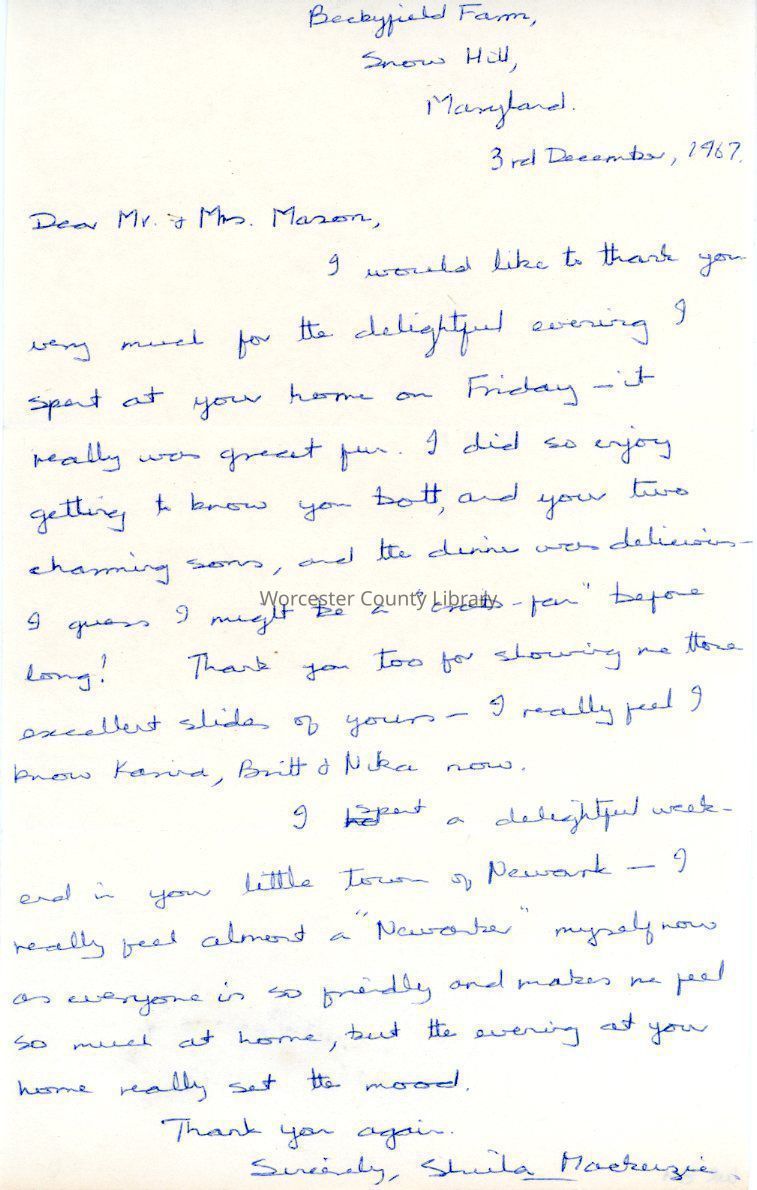 Beckyfield Farm,
Snow Hill,
Maryland.
3rd December, 1967.
Dear Mr. & Mrs. Mason,
I would like to thank you
very much for the delightful evening I
spent at your home on Friday – it
really was great fun. I did so enjoy
getting to know you both, and your two
charming sons, and the dinner was delicious –
I guess I might be a "crab-fan" before
Worcester County Library
long! Thank you too for showing me those
excellent slides of yours – I really feel I
know Karind, Britt & Nika now.
I spent a delightful week-
end in your little town of Newark – I
really feel almost a "Newarker" myself now
as everyone is so friendly and makes me feel
so much at home, but the evening at your
home really set the mood.
Thank you again.
Sincerely, Sheila Mackenzie